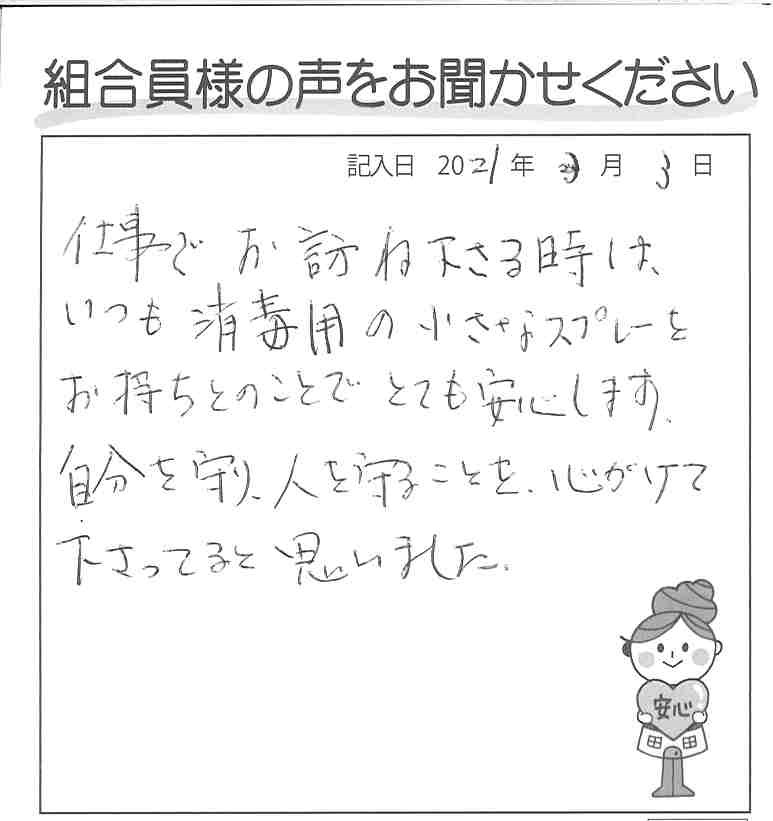 組合員様の声をお聞かせください
記入日 2021年 3月 3日
仕事で お訪ね下さる時は、
いつも 消毒用の小さなスプレーを
お持ちとのことで とても安心します。
自分を守り、人を守ることを、心がけて
下さってると 思いました。
安心